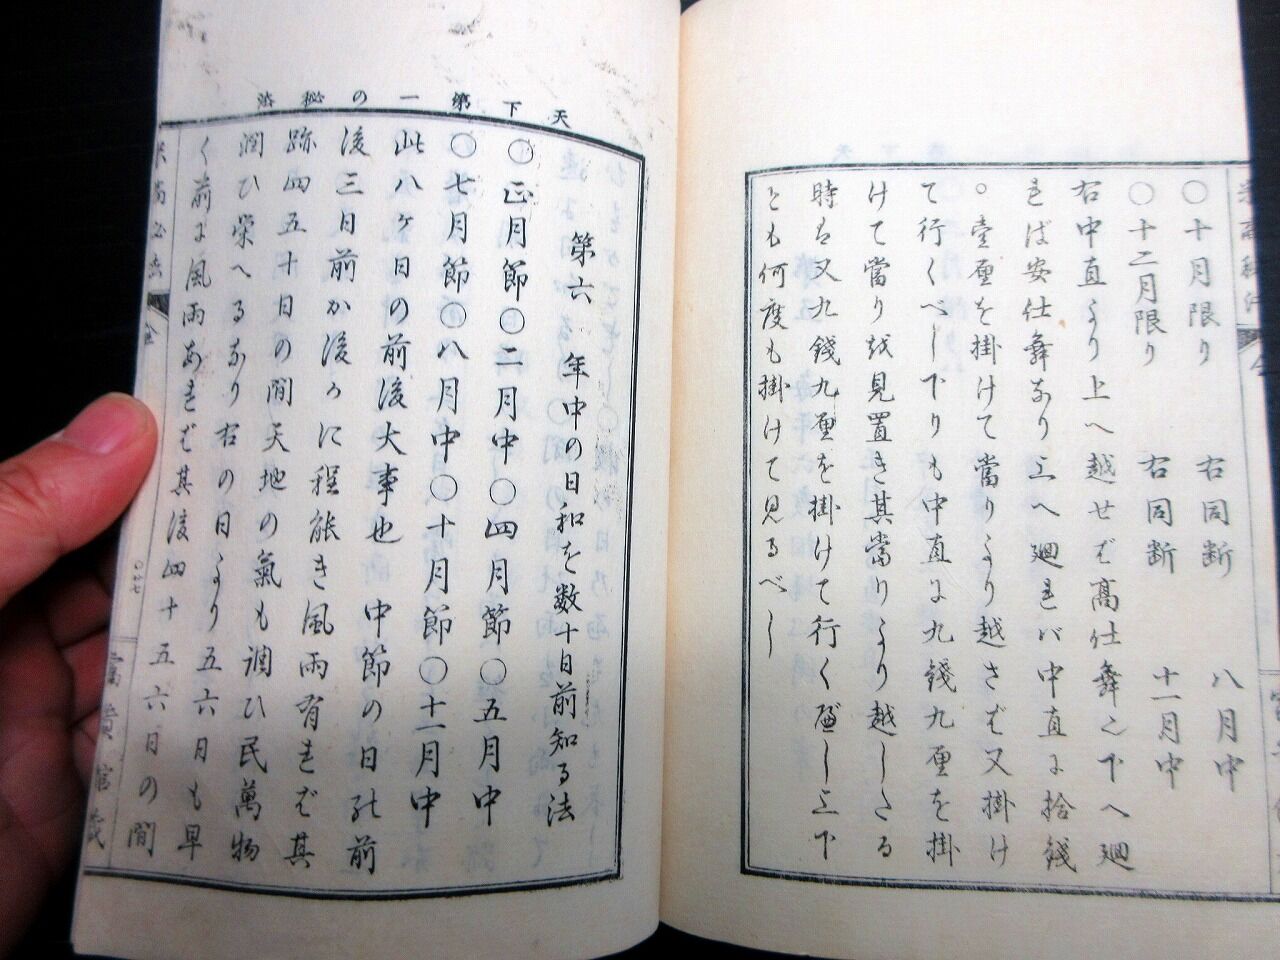 ○十月限り 右同断 八月中
○十二月限り 右同断 十一月中
右中直より上へ越せば高仕舞也下へ廻
れば安仕舞なり上へ廻れバ中直に拾銭
○壹厘を掛けて當りより越さば又掛け
て行くべし下りも中直に九錢九厘を掛
けて當り越見置き其當りより越したる
時は又九錢九厘を掛けて行く可し上下
とも何度も掛けて見るべし
天下第一の秘法
第六 年中の日和を数十日前知る法
○正月節○二月中○四月節○五月中
○七月節○八月中○十月節○十一月中
此八ヶ日の前後大事也 中節の日より前
後三日前か後かに程能き風雨有れば其
跡四五十日の間天地の氣も調ひ民萬物
潤ひ栄へるなり右の日より五六日も早
く前に風雨あれば其後四十五六日の間
富貴館蔵